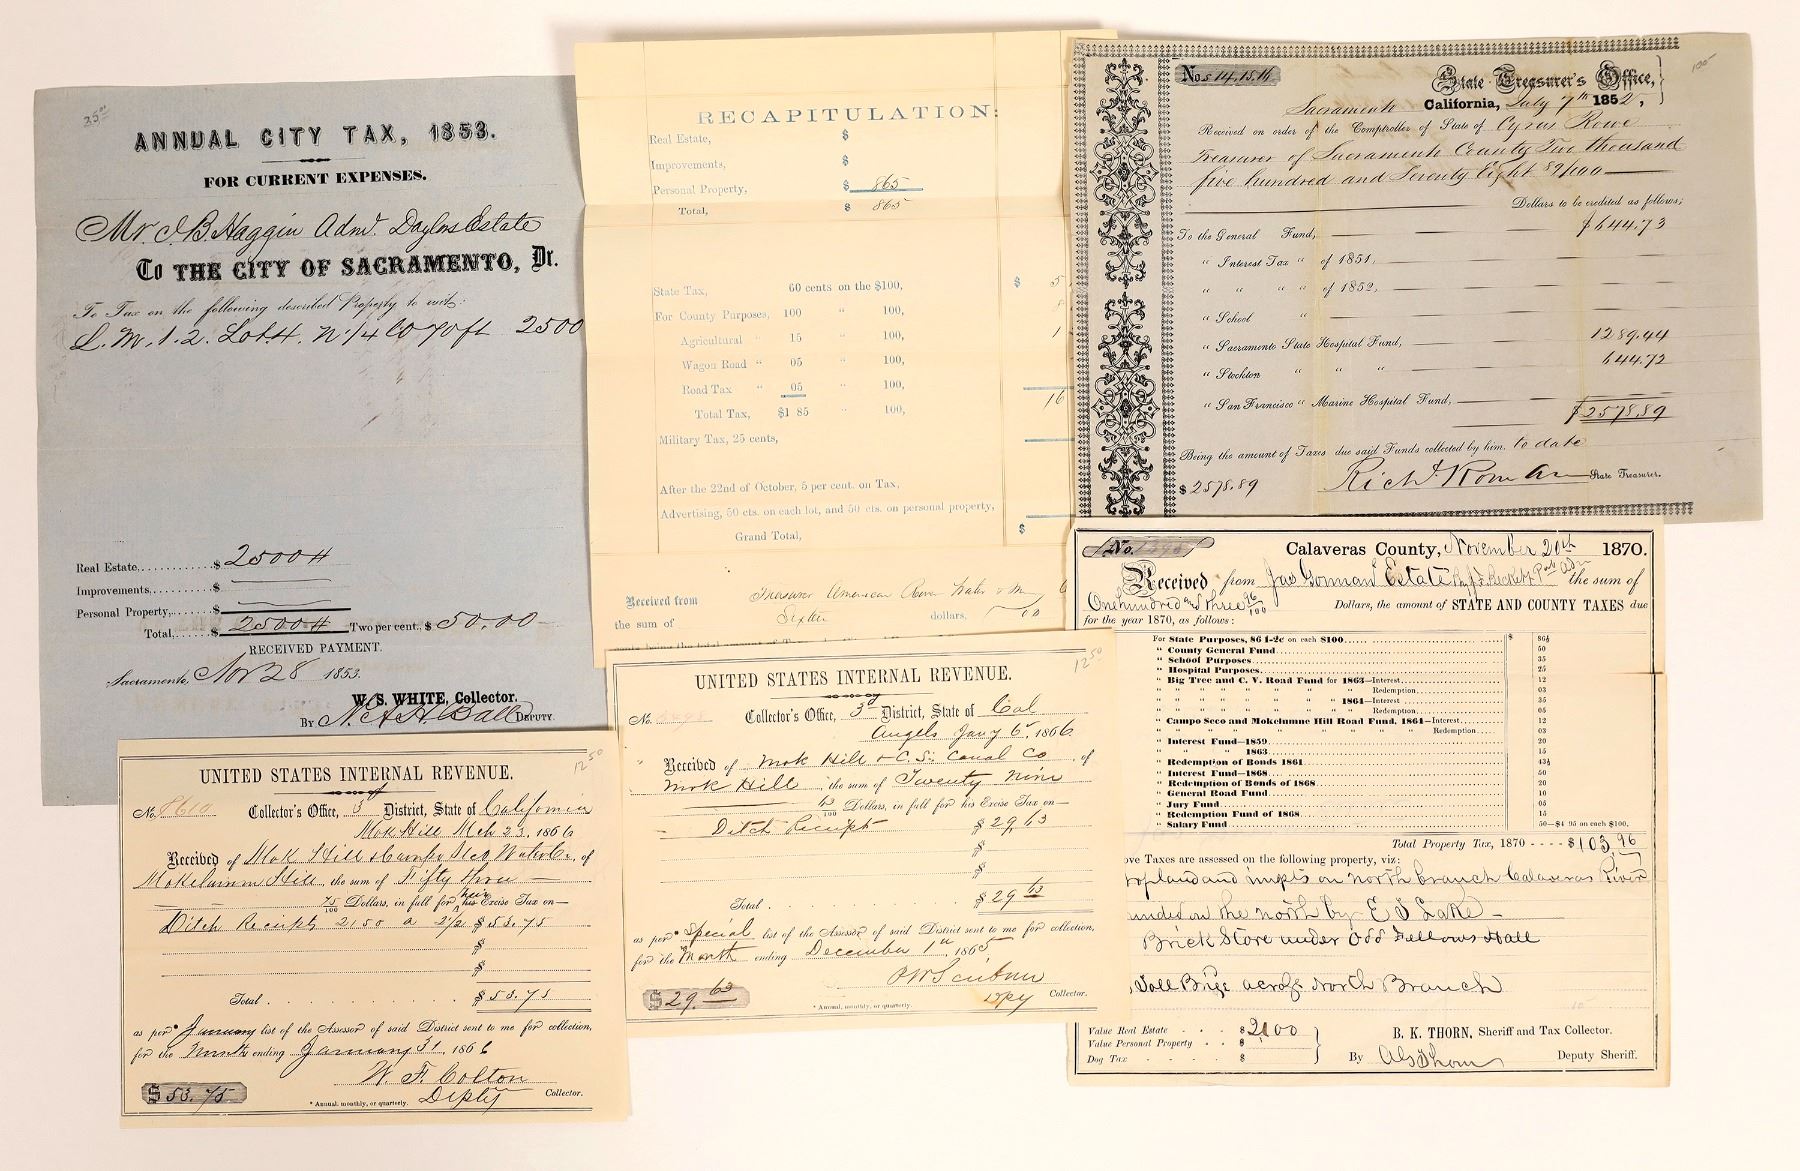 25 00
ANNUAL CITY TAX, 1853.
FOR CURRENT EXPENSES.
Mr. J. B. Haggin Admr. Daylors Estate
To THE CITY OF SACRAMENTO, Dr.
To Tax on the following described Property to wit:
L. M. 1. 2. Lot 4. N 1/4 70 ft 2500
Real Estate, $ 2500
Improvements, $
Personal Property, $
Total, $ 2500 Two per cent., $ 50.00
RECEIVED PAYMENT.
Sacramento, Nov 28 1853.
W. S. WHITE, Collector.
By DEPUTY.
RECAPITULATION:
Real Estate, $
Improvements, $
Personal Property, $ 865
Total, $ 865
State Tax, 60 cents on the $100, $ 5
For County Purposes, 100 " 100,
Agricultural " 15 " 100, 1
Wagon Road " 05 " 100,
Road Tax " 05 " 100,
Total Tax, $1 85 " 100, 16
Military Tax, 25 cents,
After the 22nd of October, 5 per cent. on Tax,
Advertising, 50 cts. on each lot, and 50 cts. on personal property,
Grand Total, $
Received from Treasurer American River Water & M
the sum of Sixteen dollars,
100
Nos 14, 15, 16
State Treasurer's Office,
Sacramento California, July 7th 1852,
Received on order of the Comptroller of State of Cyrus Rowe
Treasurer of Sacramento County Two thousand
five hundred and Seventy Eight 89/100
Dollars to be credited as follows;
To the General Fund, $644.73
" Interest Tax " of 1851,
" " " " of 1852,
" School "
" Sacramento State Hospital Fund, 1289.44
" Stockton " " " 644.72
" San Francisco " Marine Hospital Fund,
$2578.89
Being the amount of Taxes due said Funds collected by him. to date
$ 2578.89 Richd Roman State Treasurer.
UNITED STATES INTERNAL REVENUE.
12 50
No. 8610 Collector's Office, 3d District, State of California
Mok Hill Mch 23, 1866
Received of Mok Hill & Campo Seco Water Co. of
Mokelumn Hill the sum of Fifty three
75/100 Dollars, in full for their his Excise Tax on—
Ditch Receipts 2150 a 2 1/2 $ 53.75
$
$
Total $ 53.75
as per* January list of the Assessor of said District sent to me for collection,
for the Month ending January 31, 1866
W. F. Colton
$ 53.75 * Annual, monthly, or quarterly. Depty Collector.
UNITED STATES INTERNAL REVENUE.
12 50
No. Collector's Office, 3d District, State of Cal
Angels Jany 6, 1866
Received of Mok Hill & C. S. Canal Co of
Mok Hill, the sum of Twenty Nine
63/100 Dollars, in full for his Excise Tax on—
Ditch Receipts $ 29.63
$
$
Total $ 29 63
as per* Special list of the Assessor of said District sent to me for collection,
for the Month ending December 1st, 1865
$ 29. 63 * Annual, monthly, or quarterly. Dpy Collector.
No. Calaveras County, November 20th 1870.
Received from Jas Gorman Estate By J. F. Beckett Pub Adm the sum of
One hundred and three 96/100 Dollars, the amount of STATE AND COUNTY TAXES due
for the year 1870, as follows:
For State Purposes, 86 1-2c on each $100 $ 86½
" County General Fund 50
" School Purposes 35
" Hospital Purposes 25
" Big Tree and C. V. Road Fund for 1863—Interest 12
" " " " " " " " Redemption. 03
" " " " " " " 1864—Interest 35
" " " " " " " " Redemption. 05
" Campo Seco and Mokelumne Hill Road Fund, 1864—Interest 12
" " " " " " " " Redemption 03
" Interest Fund—1859 20
" " " 1863 15
" Redemption of Bonds 1861 43½
" Interest Fund—1868 50
" Redemption of Bonds of 1868 20
" General Road Fund 10
" Jury Fund 05
" Redemption Fund of 1868 15
" Salary Fund 50—$4 95 on each $100.
Total Property Tax, 1870 - - - - $103,96
ove Taxes are assessed on the following property, viz:
land and impts on north branch Calaveras River
unded on the north by E S Lake
Brick Store under Odd Fellows Hall
Toll Brige across North Branch
10
Value Real Estate $2100
Value Personal Property $
Dog Tax $
B. K. THORN, Sheriff and Tax Collector.
By A Thorn Deputy Sheriff.